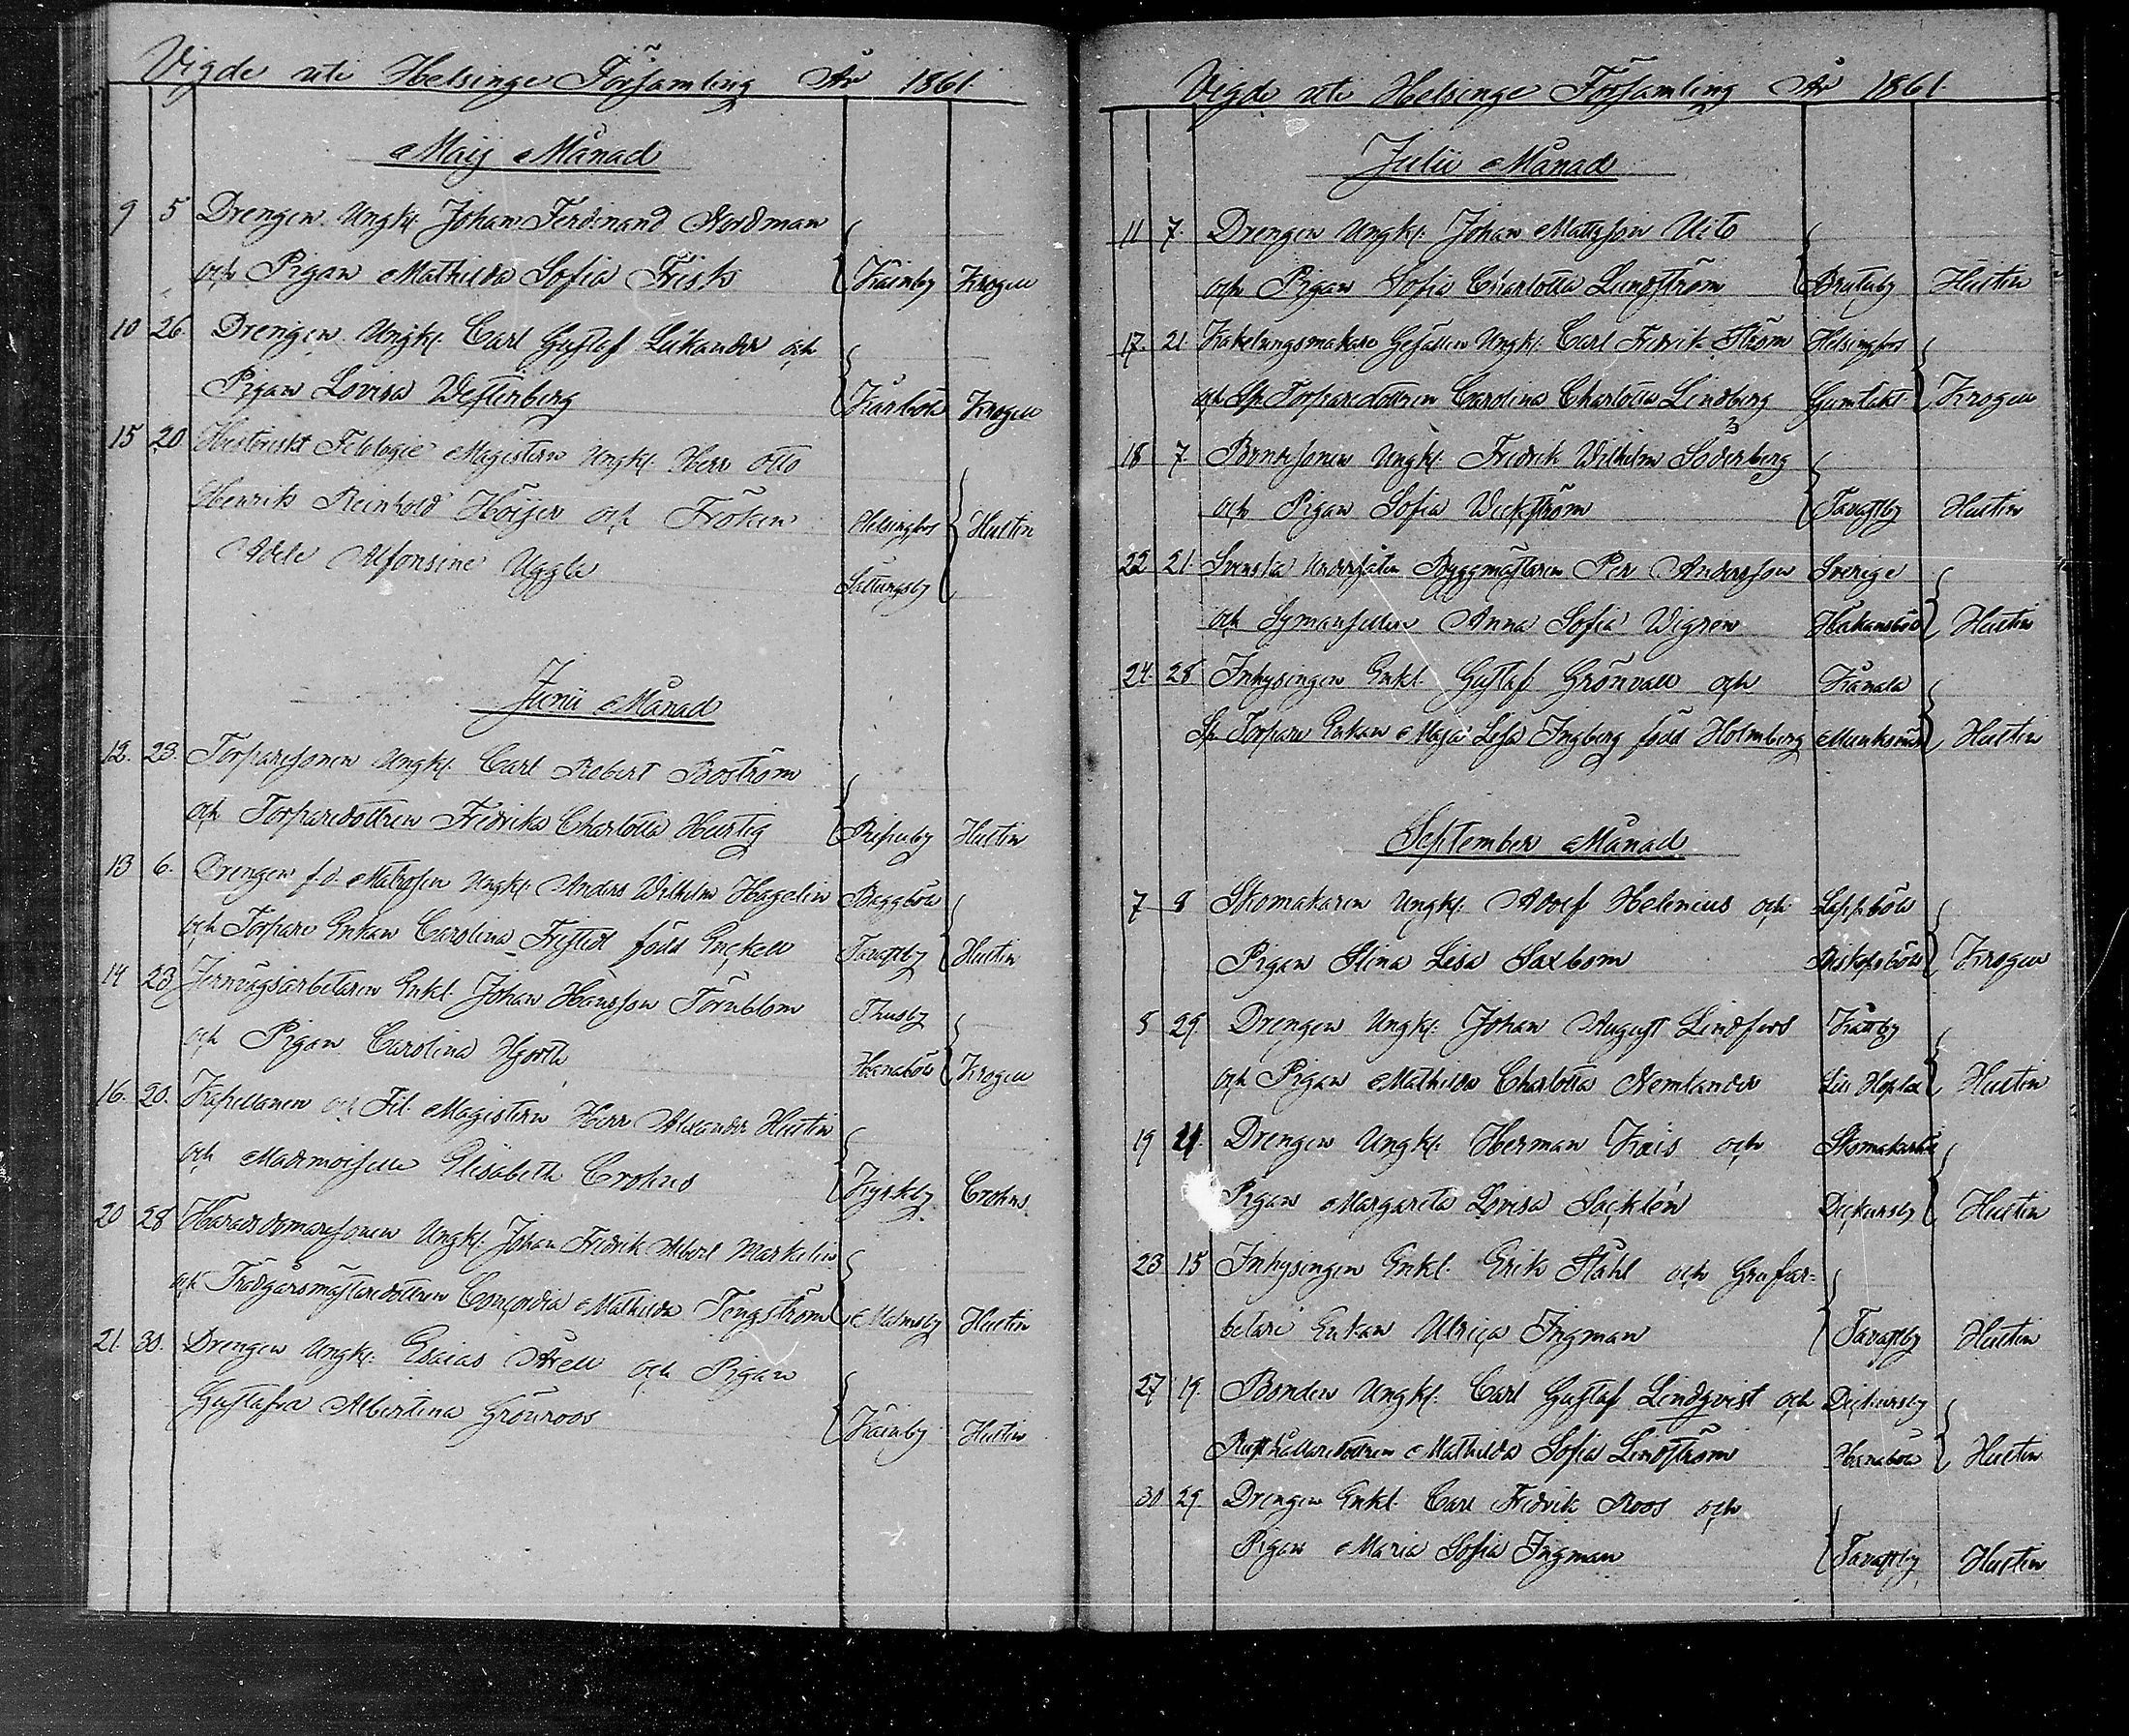 Vigde uti Helsinge Församling År 1861.
Maij Månad
9 5 Drengen Ungk. Johan Ferdinand Nordman
och Pigan Mathilda Sofia Frisk Kainby Krogell
10 26. Drengen Ungk. Carl Gustaf Lukander och
Pigan Lovisa Westerberg Kårböle Krogell
15 20 Historiskt Filologie Magistern Ungk. Herr Otto
Henrik Reinhold Höijer och Fröken Helsingfors Hustin
Adele Alfonsine Uggla Sillingsby
Junii Månad
12. 23. Torparesonen Ungk. Carl Robert Boström
och Torparedottren Fredrika Charlotta Hurtig Ripuby Hustin
13 6. Drengen f.d. Matrosen Ungk. Anders Wilhelm Hagelin Baggböle
och Torpare Enkan Carolina Frestedt född Enckell Tavastby Hustin
14 23 Jernvägsarbetaren Enkl. Johan Hansson Törnblom Thusby
och Pigan Carolina Hjorth Hanaböle Krogell
16. 20. Kapellanen och Fil. Magistern Herr Alexander Hustin
och Mademoiselle Elisabeth Crohns Kyrkby Crohns
20 28 Häradsdomaresonen Ungk. Johan Fredrik Albert Markelin
och Trädgårsmästaredottren Concordia Mathilda Tengström Malmsby Hustin
21. 30. Drengen Ungk. Esaias Årell och Pigan
Gustafva Albertina Grönroos Kainby Hustin
Vigde uti Helsinge Församling År 1861.
Julii Månad
11 7. Drengen Ungk. Johan Mattsson Uito
och Pigan Sofia Charlotta Lindström Brutuby Hustin
17. 21. Kakelungsmakare Gesällen Ungk. Carl Fredrik Ström Helsingfors
och Sp. Torparedottren Carolina Charlotta Lindberg Gumtäkt Krogell
18 7 Bondesonen Ungk. Fredrik Wilhelm Söderberg
och Pigan Sofia Wickström Tavastby Hustin
22 21. Svenska Undersåten Byggmästaren Per Andersson Sverige
och Symamsellen Anna Sofia Wigren Håkansböle Hustin
24. 28 Inhysingen Enkl. Gustaf Grönvall och Kånala
Sp. Torpare Enkan Maja Lisa Ingberg född Holmberg Hustin
September Månad
7 8 Skomakaren Ungk. Adolf Helenius och Lappböle
Pigan Stina Lisa Saxbom Biskopsböle Krogell
8 29 Drengen Ungk. Johan August Lindfors Kättby
och Pigan Mathilda Charlotta Nemlander Lill Hoplax Hustin
19 21. Drengen Ungk. Herman Kais och Skomakarböle
Pigan Margareta Lovisa Sacklén Dickursby Hustin
23 15 Inhysingen Enkl. Erik Ståhl och Grufar-
betare Enkan Ulrica Ingman Tavastby Hustin
27 19. Bonden Ungk. Carl Gustaf Lindqvist och Dickursby
Rusthållaredottren Mathilda Sofia Lindström Hanaböle Hustin
30 29 Drengen Enkl. Carl Fredrik Roos och
Pigan Maria Sofia Ingman Tavastby Hustin